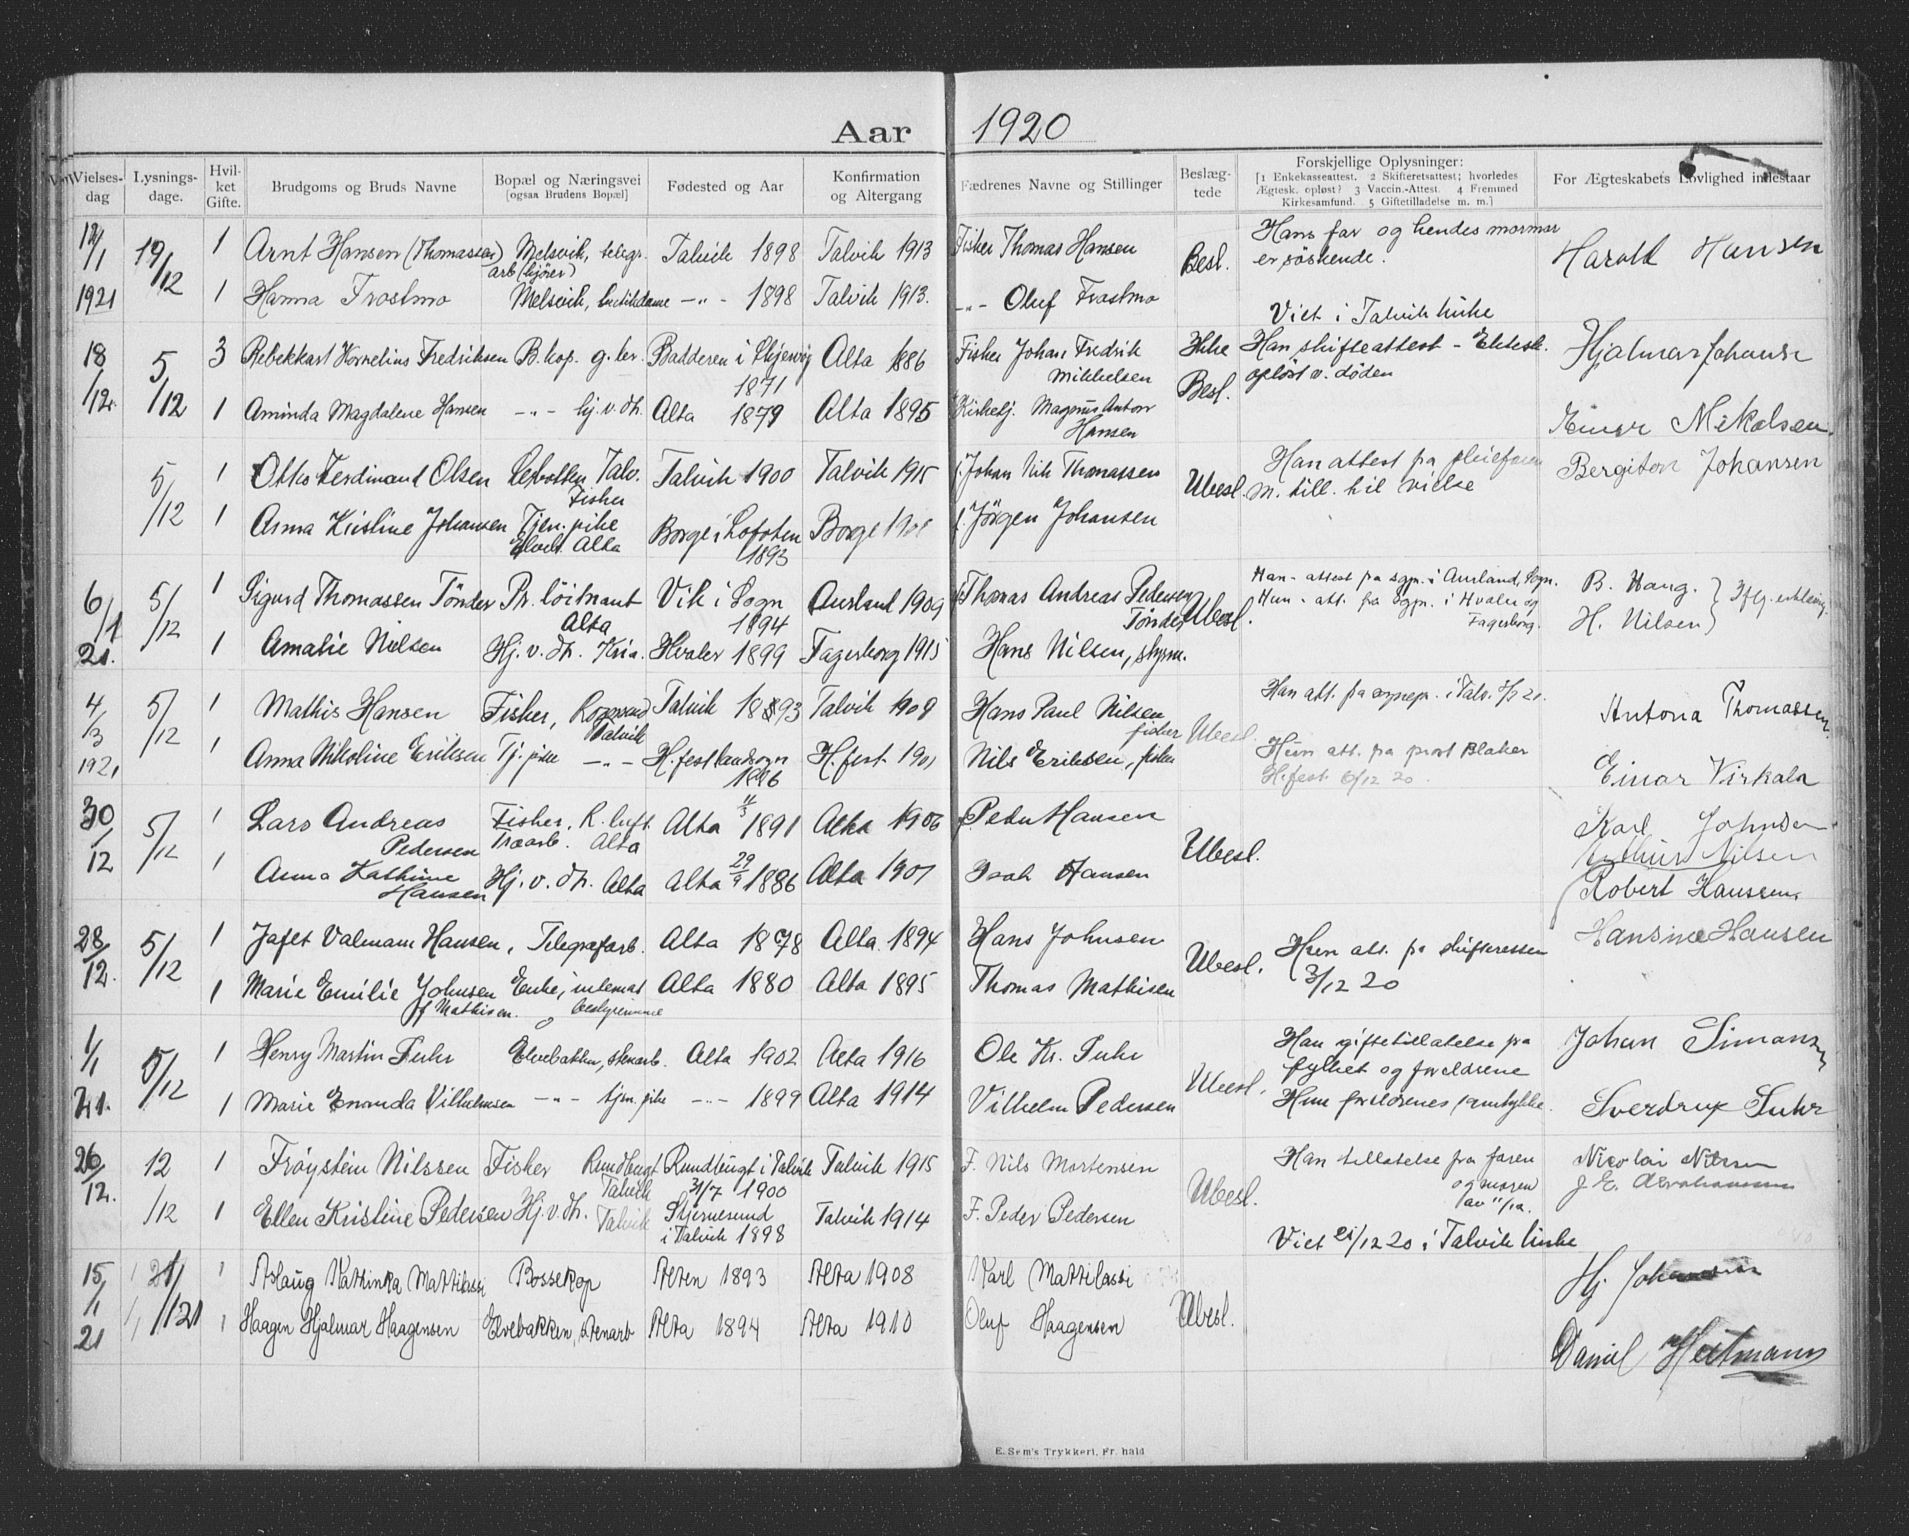 Aar 1920
Vielses-dag | Lysnings-dage. | Hvil-ket Gifte. | Brudgoms og Bruds Navne | Bopæl og Næringsvei [ogsaa Brudens Bopæl] | Fødested og Aar | Konfirmation og Altergang | Fædrenes Navne og Stillinger | Beslæg-tede | Forskjellige Oplysninger: [1 Enkekasseattest. 2 Skifteretsattest; hvorledes Ægtesk. opløst? 3 Vaccin.-Attest. 4 Fremmed Kirkesamfund. 5 Giftetilladelse m. m.] | For Ægteskabets Lovlighed indestaar
12/1 1921 | 19/12 | 1 | Arnt Hansen (Thomassen) | Melsvik, telegr. arb (kjører) | Talvik 1898 | Talvik 1913 | Fisker Thomas Hansen | Besl. | Hans far og hendes mormor er søskende. | Harold Hansen
1 | Hanna Frostmo | Melsvik, butikdame | -"- 1898 | Talvik 1913. | -"- Oluf Frostmo | Viet i Talvik kirke
18/12. | 5/12 | 3 | Rebekkart Kornelius Fredriksen | B.kop. g.br. | Badderen i Skjervøy 1871 | Alta 1886 | Fisker Johan Fredrik Mikkelsen | Ikke Besl. | Han skifteattest - Ektesk. opløst v. døden | Hjalmar Johansen
1 | Aminda Magdalene Hansen | -"- hj.v.dh. | Alta 1879 | Alta 1895 | Kirketj. Magnus Anton Hansen | Einar Mikalsen.
5/12 | 1 | Otto Ferdinand Olsen | Talv. Fisker | Talvik 1900 | Talvik 1915 | f. Johan Thomassen | Ubesl. | Han attest fra pleiefaren m. till. til vielse | Bergiton Johansen
1 | Anna Kristine Johansen | Tjen. pike Elveb. Alta | Borge i Lofoten 1893 | Borge | f. Jørgen Johansen
6/1 21. | 5/12 | 1 | Sigurd Thomassen Tønder | Pr. löitnant Alta | Vik i Sogn 1894 | Aurland 1909 | Thomas Andreas Pedersen Tønder | Ubesl. | Han - attest fra sgpr. i Aurland, Sogn. Hun - att. fra sgpr. i Hvaler og Fagerborg. | B. Haug. H. Nilsen } Iflg. erklæring
1 | Amalie Nielsen | Hj. v. dh. Kria. | Hvaler 1899 | Fagerborg 1915 | Hans Nilsen, styrm.
4/3 1921 | 5/12 | 1 | Mathis Hansen | Fisker, Talvik | Talvik 1893 | Talvik 1908 | Hans Paul Nilsen fisker | Ubesl. | Han att. fra sognepr. i Talv. | Antona Thomassen.
1 | Anna Nikoline Eriksen | Tj. pike -"- | H.fest landsogn 1886 | H.fest. 1901 | Nils Eriksen, fisker | Hun att. fra prost Blaker H.fest. 6/12 20. | Einar Virkala
30/12 | 5/12 | 1 | Lars Andreas Pedersen | Fisker, R. luft Træarb. Alta | Alta 1891 | Alta 1906 | Peder Hansen | Ubesl. | Karl Johnsen Arthur Nilsen
1 | Anna Kathrine Hansen | Hj. v. dh. Alta | Alta 29/9 1886 | Alta 1901 | Isak Hansen | Robert Hanssen.
28/12. | 5/12 | 1 | Jafet Valmann Hansen, | Telegrafarb. | Alta 1878 | Alta. 1894 | Hans Johnsen | Ubesl. | Hun att. fra skifteretten 3/12 20 | Hansine Hansen
1 | Marie Emilie Johnsen f. Mathisen. | Enke, internat bestyrerinne | Alta 1880 | Alta 1895 | Thomas Mathisen
1/1 21. | 5/12 | 1 | Henry Martin Suhr | Elvebakken, stenarb. | Alta 1902 | Alta 1916 | Ole Kr. Suhr | Ubesl. | Han giftetillatelse fra fylket og foreldrene | Johan Simonsen
1 | Marie Emanda Vilhelmsen | -"- tjen. pike | -"- 1899 | Alta 1914 | Vilhelm Pedersen | Hun foreldrenes samtykke. | Sverdrup Suhr
26/12. | 12/12 | 1 | Frøystein Nilssen | Fisker Rundbugt Talvik | Rundbugt i Talvik 31/7 1900 | Talvik 1915 | F. Nils Mortensen | Ubesl. | Han tillatelse fra faren og moren | Nicolai Nilssen J. E. Abrahamsen
1 | Ellen Kristine Pedersen | Hj. v. dh. Talvik | Stjernesund i Talvik 1898 | Talvik 1914 | F. Peder Pedersen | Viet 21/12 20 i Talvik kirke
15/1 21 | 1 | Aslaug Kathinka Mattilassi | Bossekop | Alten 1893 | Alta 1908 | Karl Mattilassi | Ubesl. | Hj. Johansen
1 | Haagen Hjalmar Haagensen | Elvebakken, stenarb | Alta 1894 | Alta 1910 | Oluf Haagensen | Daniel Heitmann
E. Sem's Trykkeri, Fr. hald